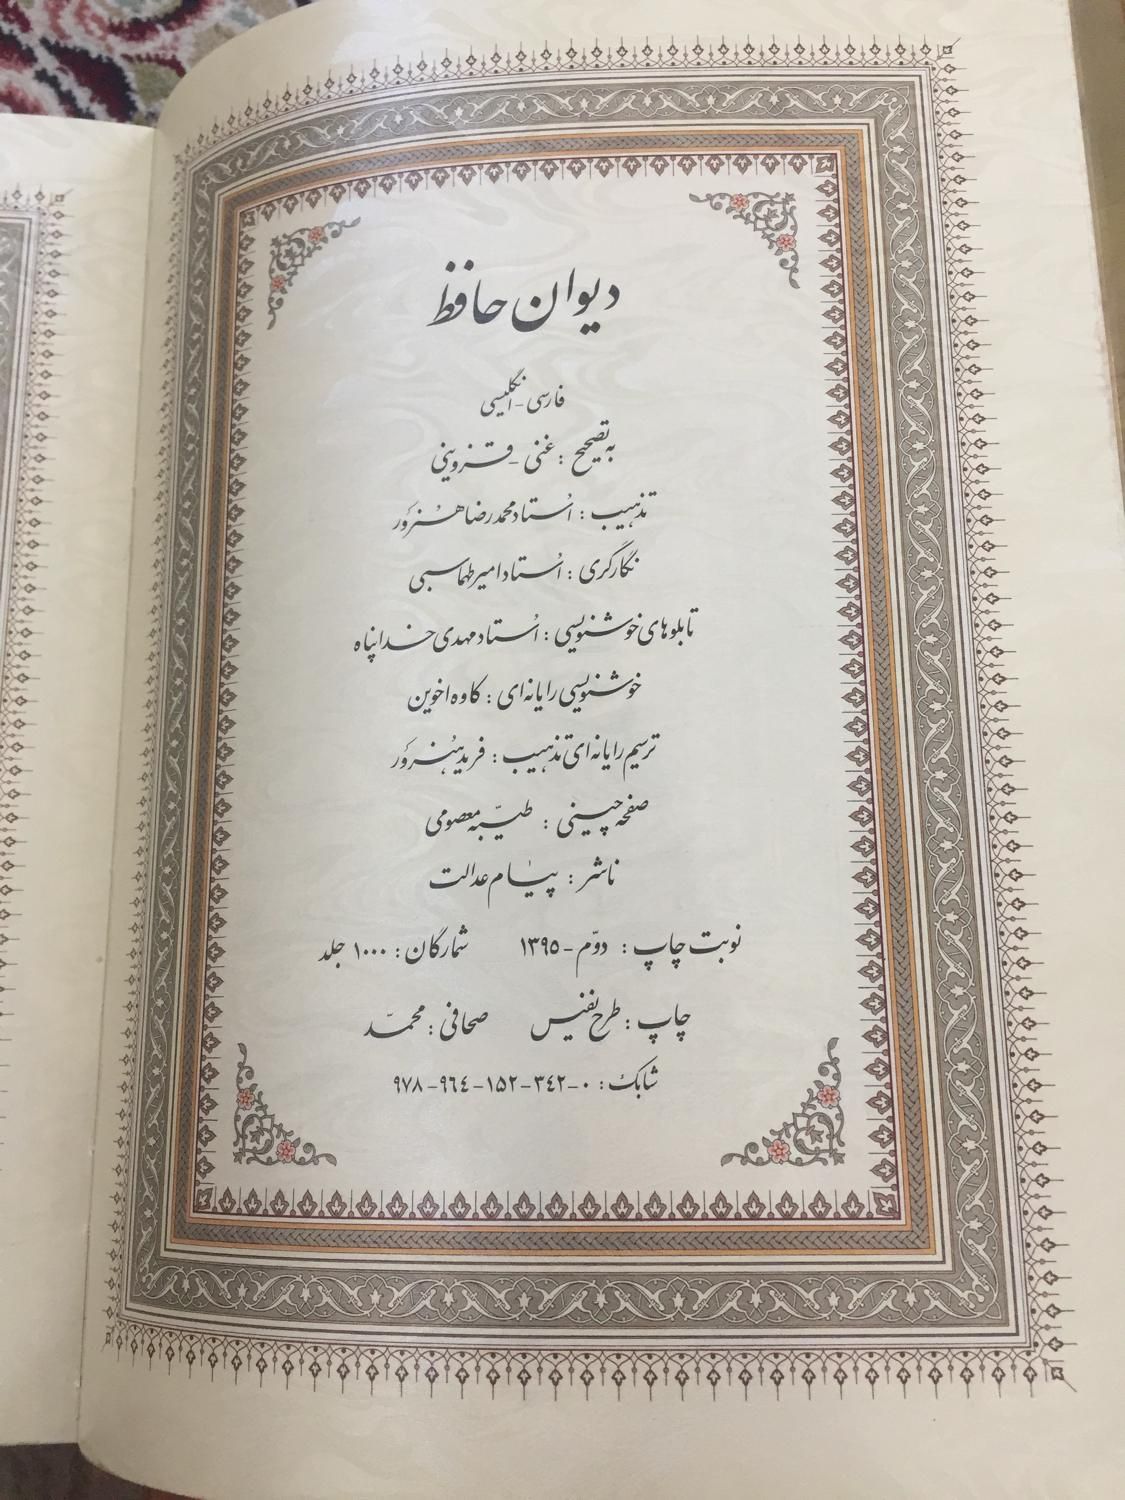 دیوان حافظ
فارسی - انگلیسی
به تصحیح : غنی - قزوینی
تذهیب : اُستاد محمدرضا هُنرور
نگارگری : اُستاد امیر طهماسبی
تابلوهای خوشنویسی : اُستاد مهدی خداپناه
خوشنویسی رایانه ای : کاوه اخوین
ترسیم رایانه ای تذهیب : فرید هُنرور
صفحه چینی : طیّبه معصومی
ناشر : پیام عدالت
نوبت چاپ : دوّم - ۱۳۹۵ شمارگان : ۱۰۰۰ جلد
چاپ : طرح نفیس صحافی : محمّد
شابک : ۰-۳۴۲-۱۵۲-۹۶۴-۹۷۸